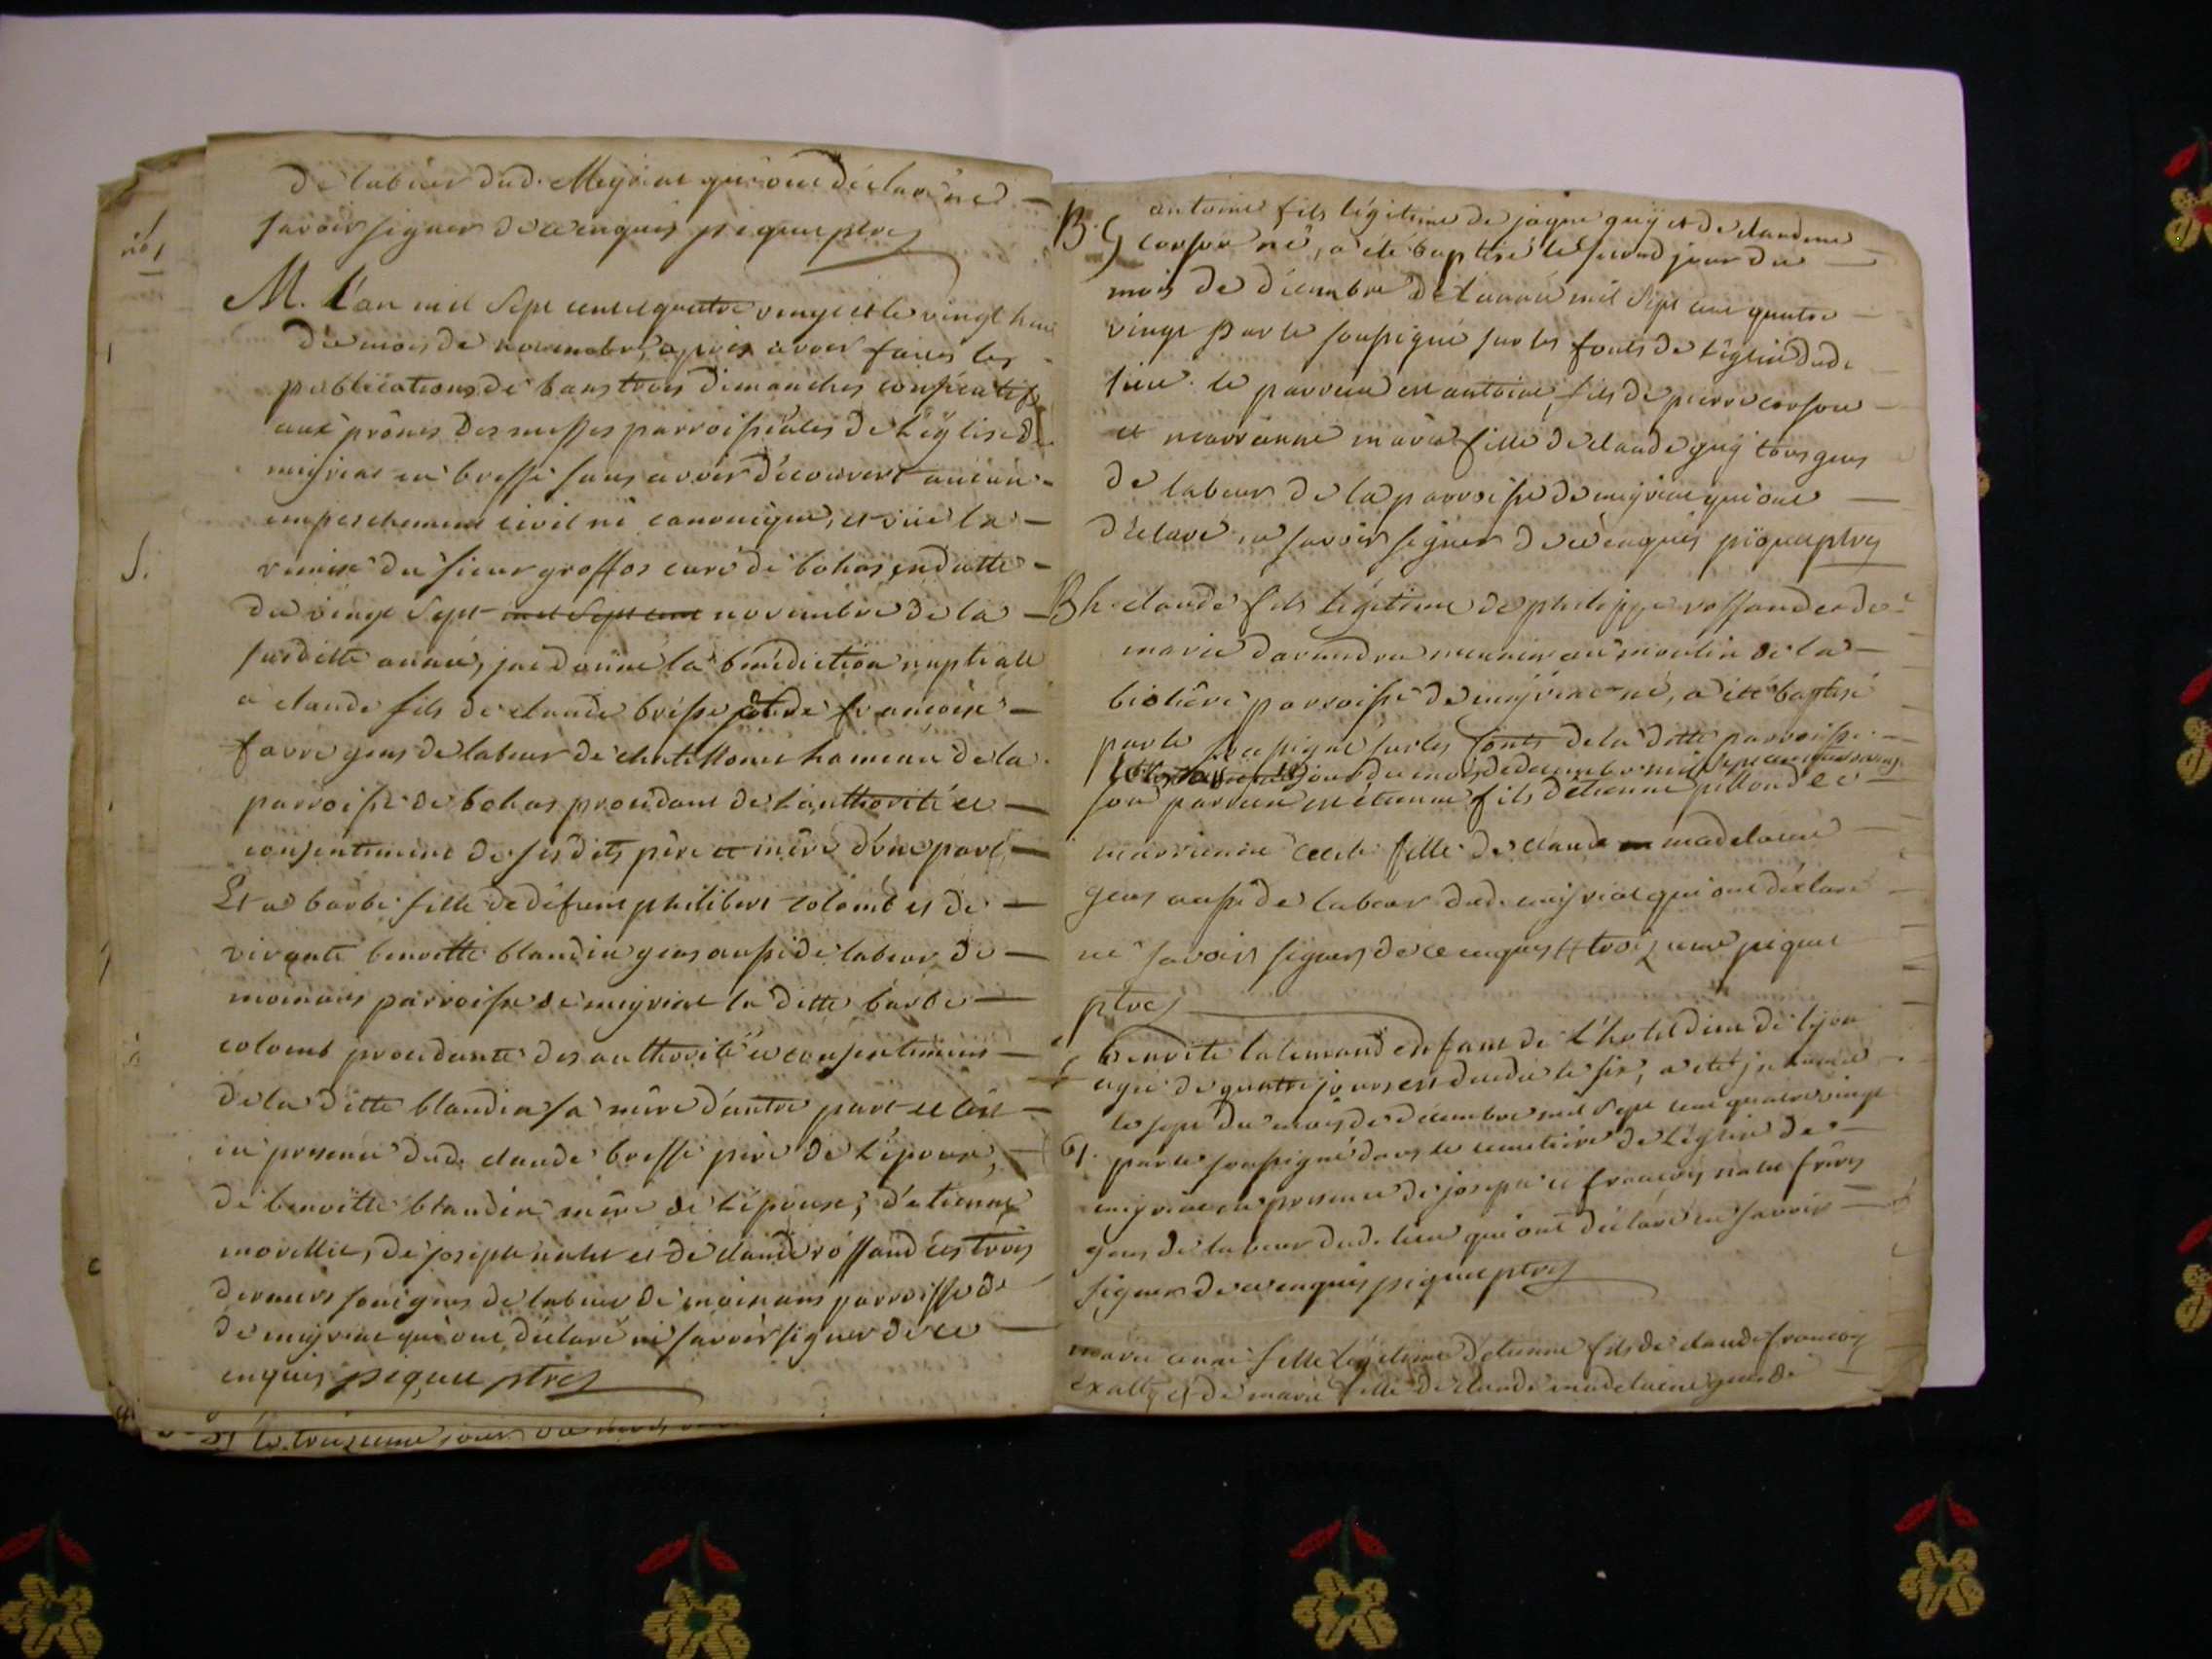 de labeur dud. Meyriat qui ont déclaré ne
savoir signer de ce enquis piquet ptre
M. L'an mil sept cent quatre vingt et le vingt huit
du mois de novembre, après avoir faites les
publications de bans trois dimanches consécutifs
aux prônes des messes parroissiales de l'église de
meyriat en bresse sans avoir découvert aucun
empeschement civil ni canonique, et vüe la
remise du sieur groffos curé de bohas en datte
du vingt sept mil sept cent novembre de la
susditte année, jai donné la bénédiction nuptiale
a claude fils de claude brisse et de françoise
favre gens de labeur de hameau de la
parroisse de bohas procédant de l'authorité et
consentement de ses dits père et mère d'une part
Et a barbe fille de défunt philibert colomb et de
vivante benoitte blandin gens aussi de labeur de
momans parroisse de meyriat la ditte barbe
colomb procédante des authorité et consentement
de la ditte blandin sa mère d'autre part et cest
en presence dud. claude bresse père de l'époux,
de benoitte blandin mère de l'épouse, d'etienne
morellet, de joseph nalet et de claude roffand les trois
derniers gens de labeur de momans parroisse de
de meyriat qui ont déclaré ne savoir signer de ce
enquis piquet ptre
le treizieme jour du mois
B. G antoine fils légitime de jaque guÿ et de claudine
corsou né, a été baptisé le second jour du
mois de décembre de l'année mil sept cent quatre
vingt par le soussigné sur les fonts de l'église dudt
lieu. le parrein est antoine, fils de pierre corsou
et marrainne marie fille de claude guÿ tous gens
de labeur de la parroisse de meyriat qui ont
déclaré ne savoir signer de ce enquis piquet ptre
B h. claude fils légitime de philippe roffand et de
marie meunier au moulin de la
biolière parroisse de meyriat né, a été baptisé
par le soussigné sur les fonts de la ditte parroisse
jour du mois de decembre mil sept cent quatre vingt
son parrein est étienne fils d'étienne et
marrienne fille de claude madelaine
gens aussi de labeur dud. meyriat qui ont déclaré
ne savoir signer de ce enquis piquet
ptre
benoite lalemand enfant de l'hotel dieu de lyon
agée de quatre jours est le six, a été inhumée
le sept du mois de décembre mil sept cent quatre vingt
par le soussigné dans le cemetière de l'église de
meyriat en presence de joseph et françois nalet frères
gens de labeur dud. lieu qui ont déclaré ne savoir
signer de ce enquis piquet ptre
marie anne fille légitime d'etienne fils de claude françois
et de marie fille de claude madelaine gens de